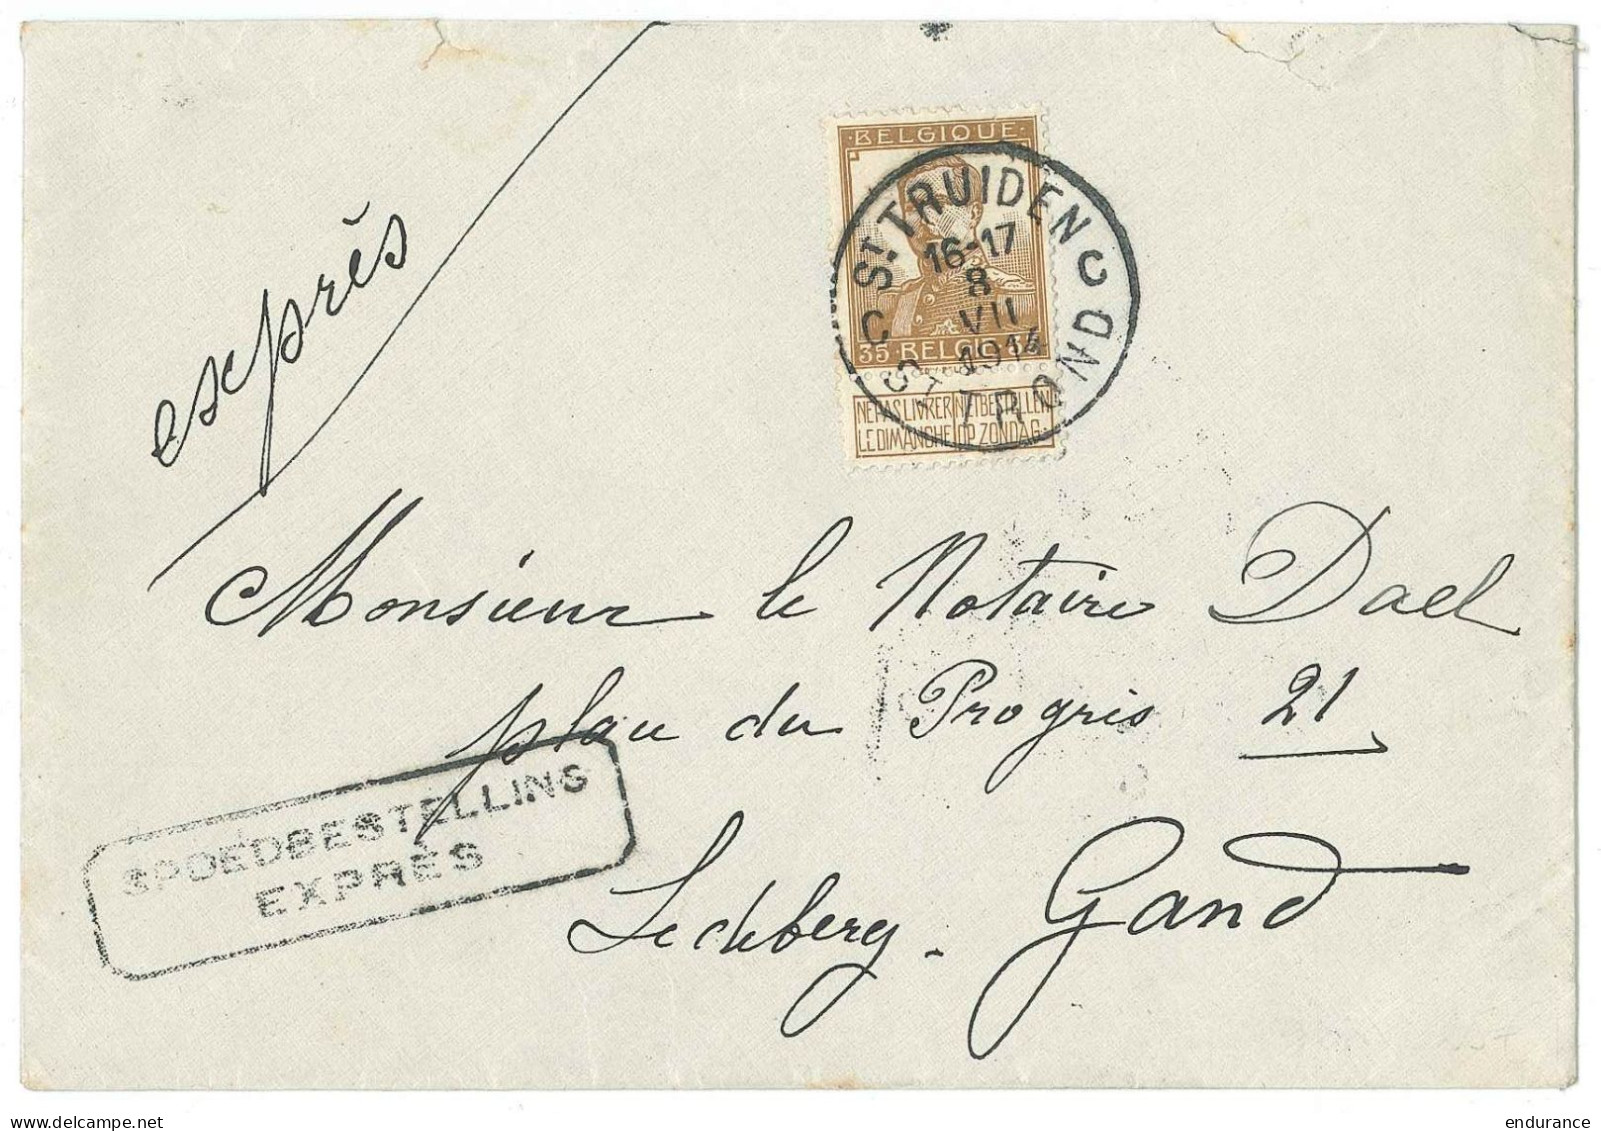 exprès
BELGIQUE
35 BELGIE 35
NE PAS LIVRER LE DIMANCHE
NIET BESTELLEN OP ZONDAG
ST TRUIDEN
C C
16-17
8
VII
1914
ST TROND
Monsieur le Notaire Dael
place du Progrès 21
SPOEDBESTELLING
EXPRÈS
Ledeberg. Gand
www.delcampe.net
endurance